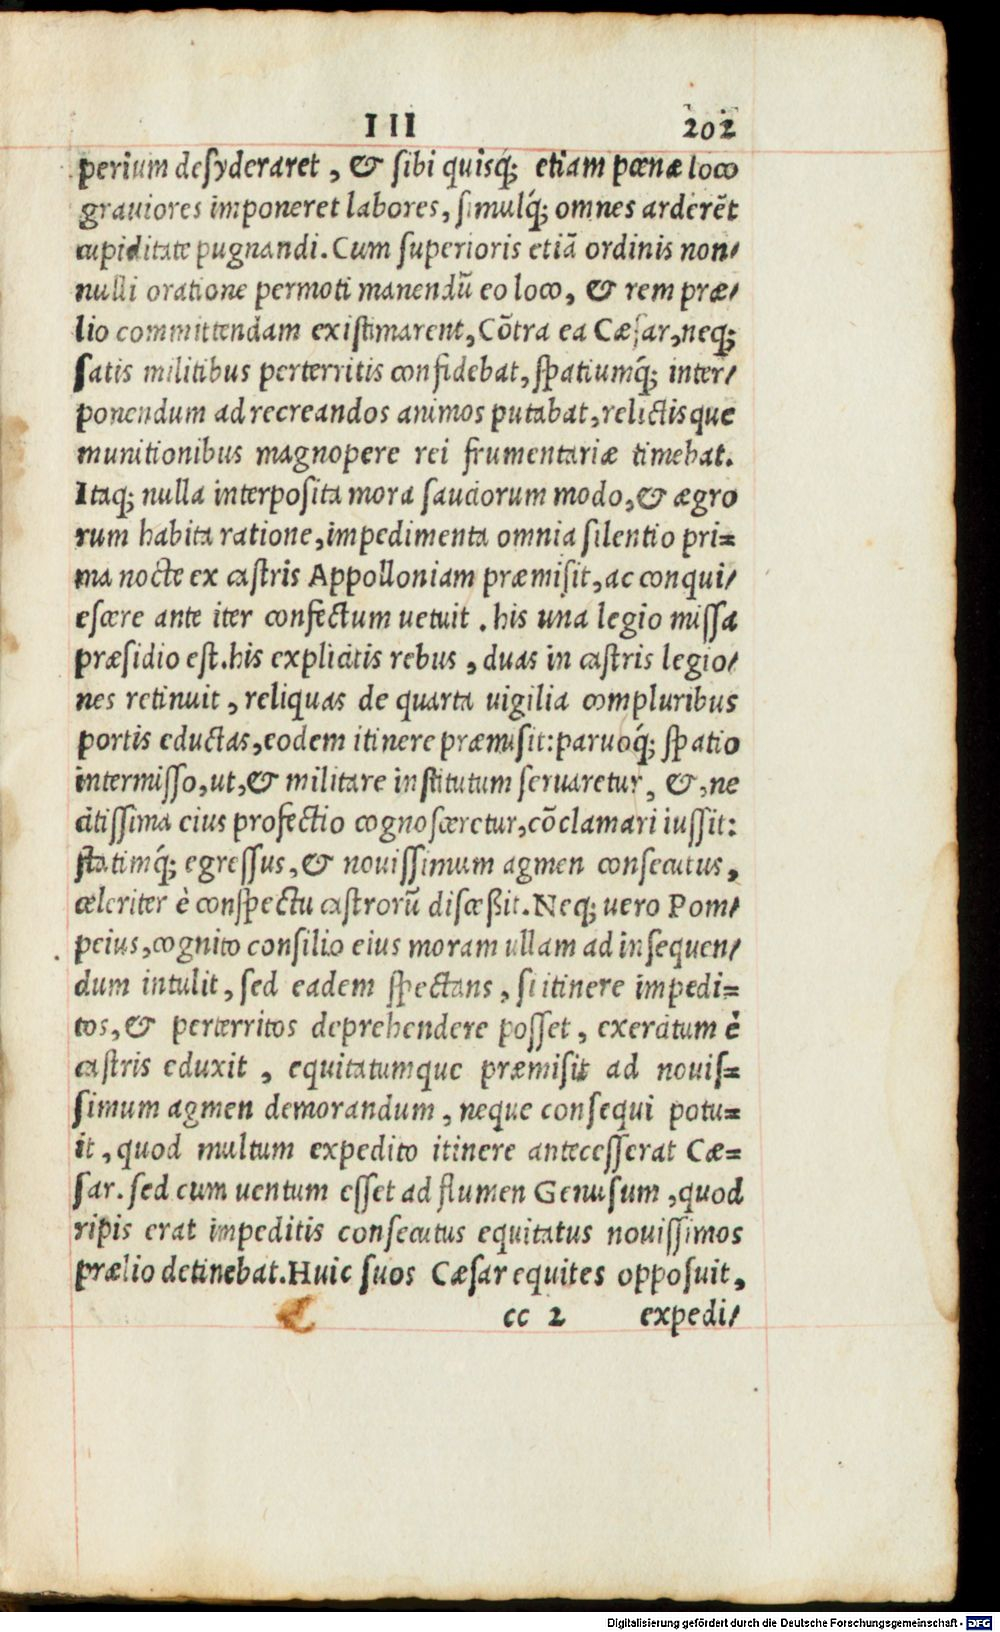 III 202
perium desyderaret, & sibi quisq́; etiam pœnæ loco
grauiores imponeret labores, simulq́; omnes arderẽt
cupiditate pugnandi. Cum superioris etiã ordinis non/
nulli oratione permoti manendũ eo loco, & rem præ/
lio committendam existimarent, Cõtra ea Cæsar, neq;
satis militibus perterritis confidebat, spatiumq́; inter/
ponendum ad recreandos animos putabat, relictisque
munitionibus magnopere rei frumentariæ timebat.
Itaq; nulla interposita mora sauciorum modo, & ægro
rum habita ratione, impedimenta omnia silentio pri=
ma nocte ex castris Appolloniam præmisit, ac conqui/
escere ante iter confectum uetuit. his una legio missa
præsidio est. his explicitis rebus, duas in castris legio/
nes retinuit, reliquas de quarta uigilia compluribus
portis eductas, eodem itinere præmisit: paruoq́; spatio
intermisso, ut, & militare institutum seruaretur, &, ne
citissima eius profectio cognosceretur, cõclamari iussit:
statimq́; egressus, & nouissimum agmen consecutus,
celeriter è conspectu castrorũ disceßit. Neq; uero Pom/
peius, cognito consilio eius moram ullam ad insequen/
dum intulit, sed eadem spectans, si itinere impedi=
tos, & perterritos deprehendere posset, exercitum è
castris eduxit, equitatumque præmisit ad nouis=
simum agmen demorandum, neque consequi potu=
it, quod multum expedito itinere antecesserat Cæ=
sar. sed cum uentum esset ad flumen Genusum, quod
ripis erat impeditis consecutus equitatus nouissimos
prælio detinebat. Huic suos Cæsar equites opposuit,
cc 2 expedi/
Digitalisierung gefördert durch die Deutsche Forschungsgemeinschaft - DFG